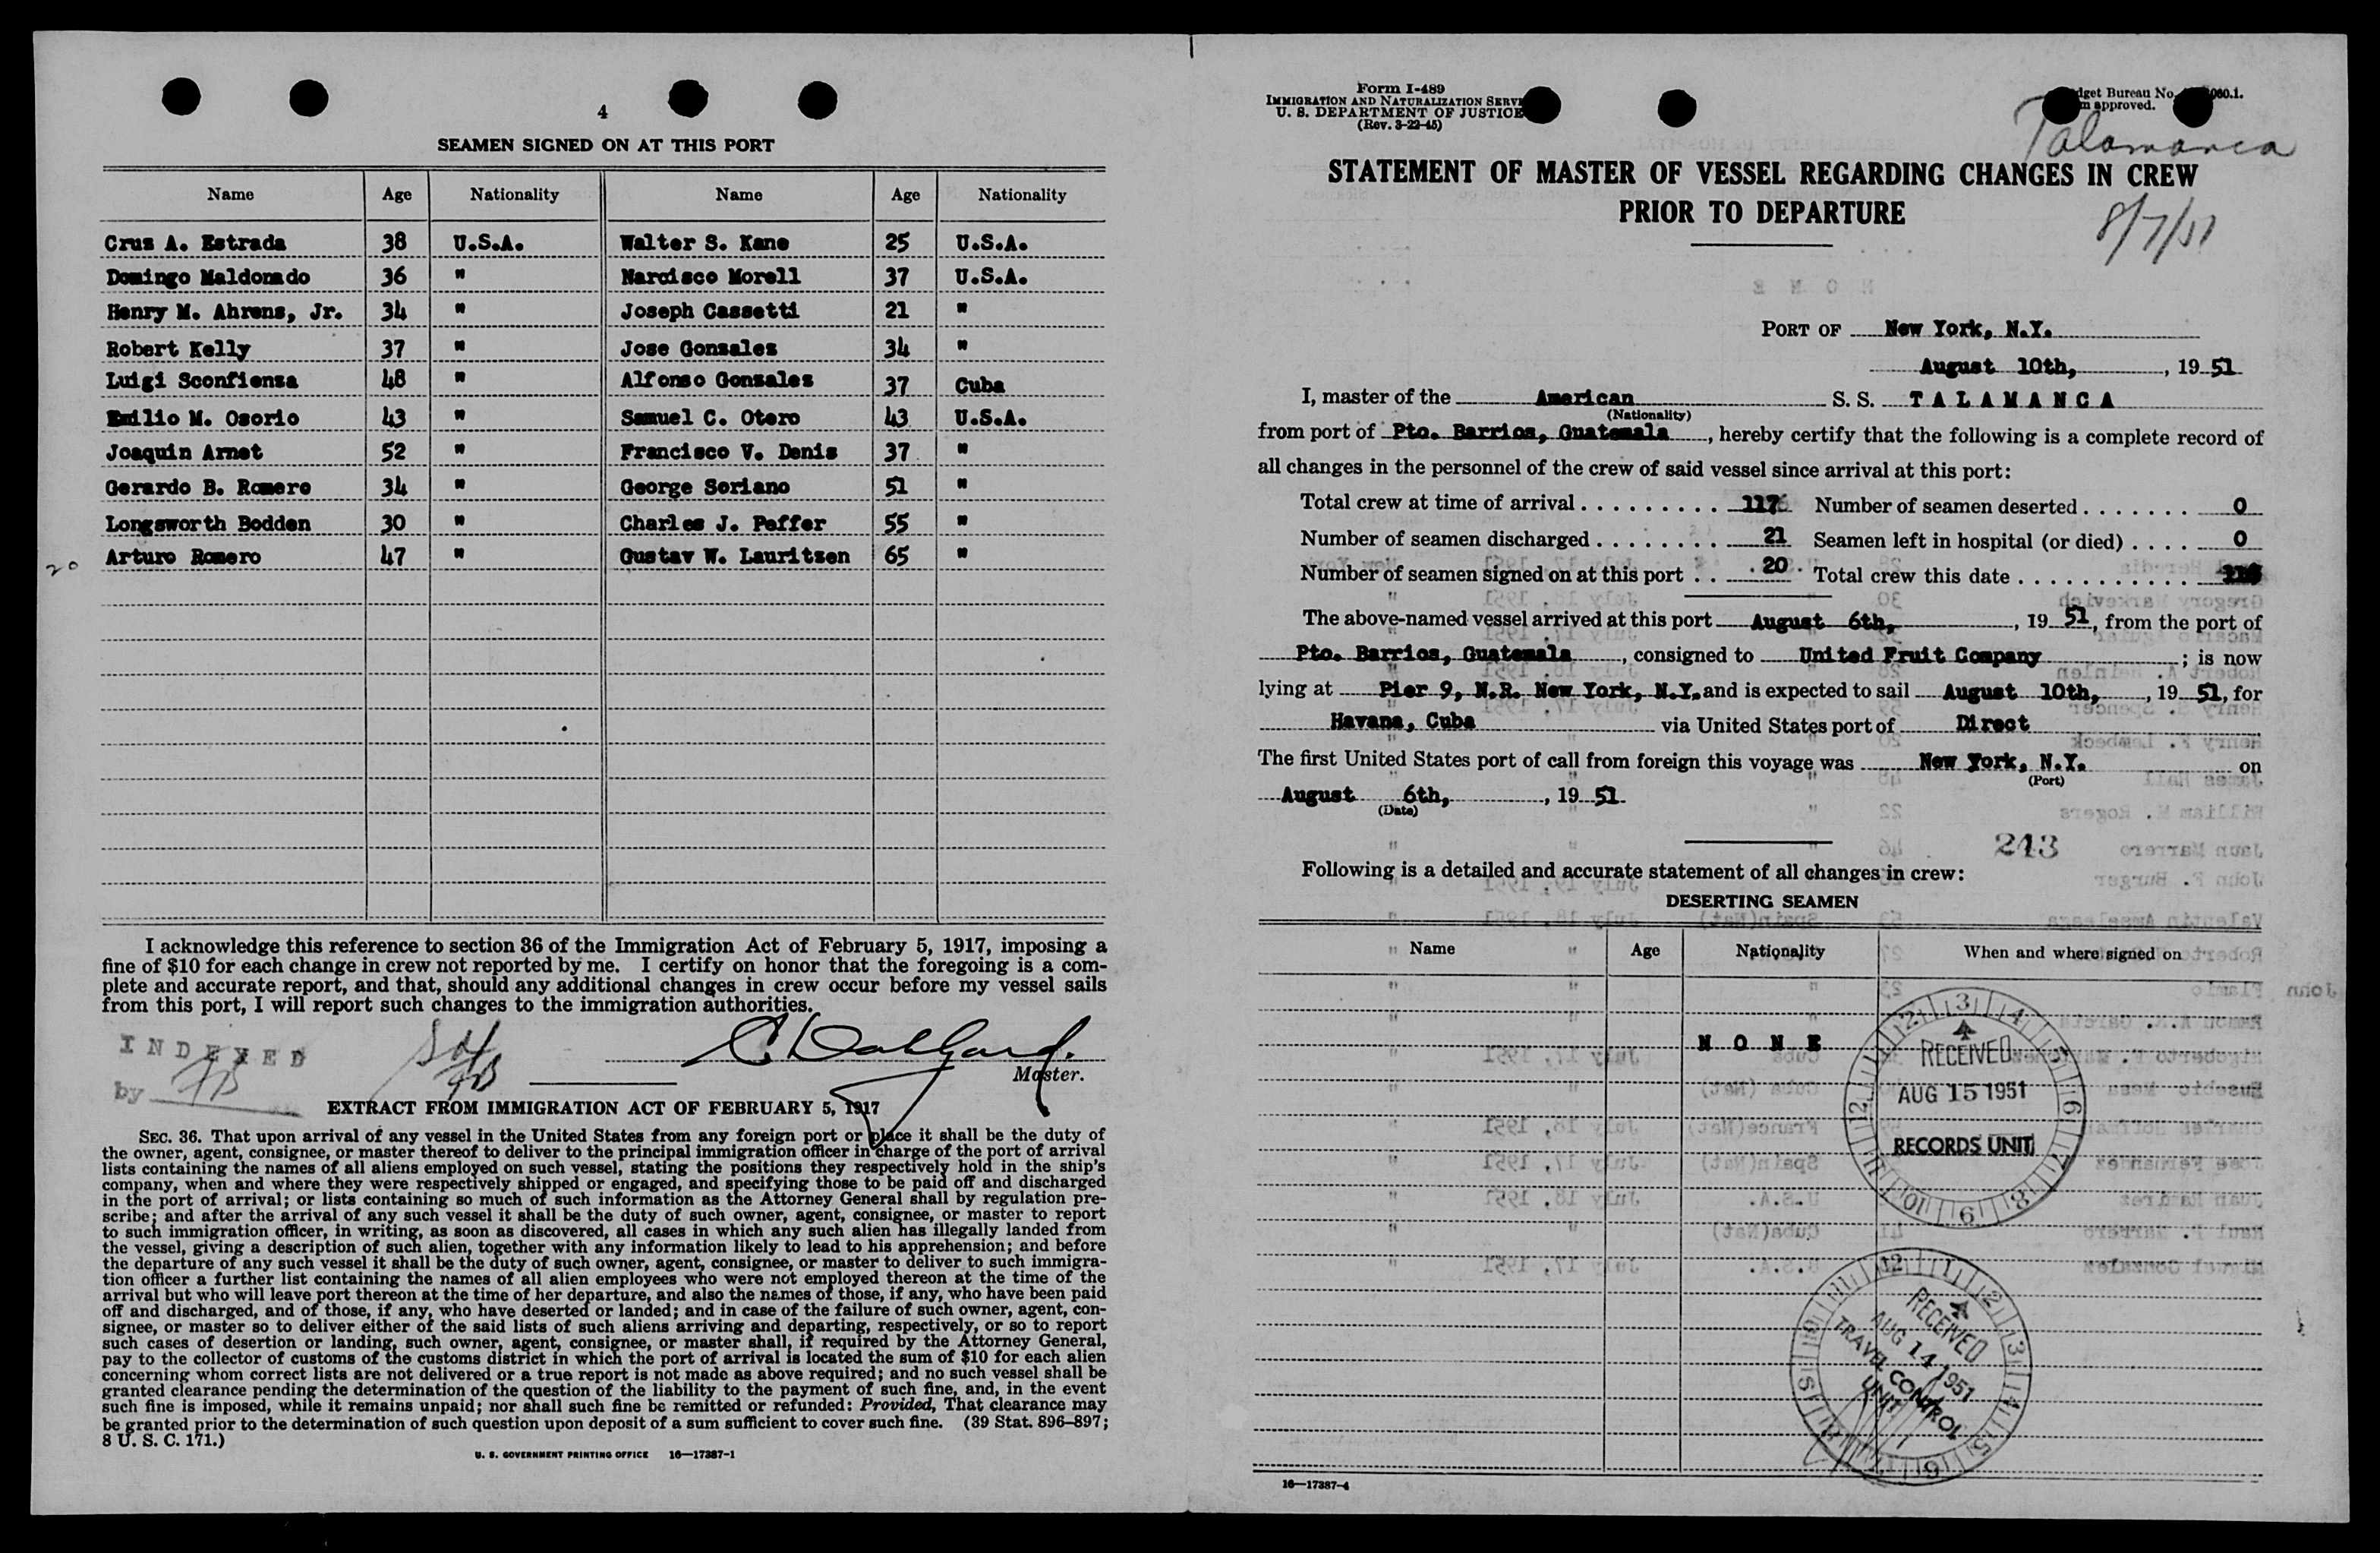 4
SEAMEN SIGNED ON AT THIS PORT
Name Age Nationality Name Age Nationality
Cruz A. Estrada 38 U.S.A. Walter S. Kane 25 U.S.A.
Domingo Maldonado 36 " Narcisco Morell 37 U.S.A.
Henry M. Ahrens, Jr. 34 " Joseph Cassetti 21 "
Robert Kelly 37 " Jose Gonzales 34 "
Luigi Sconfienza 48 " Alfonso Gonzales 37 Cuba
Emilio M. Osorio 43 " Samuel C. Otero 43 U.S.A.
Joaquin Arnet 52 " Francisco V. Denis 37 "
Gerardo B. Romero 34 " George Soriano 51 "
Longsworth Bodden 30 " Charles J. Peffer 55 "
20 Arturo Romero 47 " Gustav W. Lauritzen 65 "
I acknowledge this reference to section 36 of the Immigration Act of February 5, 1917, imposing a
fine of $10 for each change in crew not reported by me. I certify on honor that the foregoing is a com-
plete and accurate report, and that, should any additional changes in crew occur before my vessel sails
from this port, I will report such changes to the immigration authorities.
INDEXED
by
Master.
EXTRACT FROM IMMIGRATION ACT OF FEBRUARY 5, 1917
SEC. 36. That upon arrival of any vessel in the United States from any foreign port or place it shall be the duty of
the owner, agent, consignee, or master thereof to deliver to the principal immigration officer in charge of the port of arrival
lists containing the names of all aliens employed on such vessel, stating the positions they respectively hold in the ship's
company, when and where they were respectively shipped or engaged, and specifying those to be paid off and discharged
in the port of arrival; or lists containing so much of such information as the Attorney General shall by regulation pre-
scribe; and after the arrival of any such vessel it shall be the duty of such owner, agent, consignee, or master to report
to such immigration officer, in writing, as soon as discovered, all cases in which any such alien has illegally landed from
the vessel, giving a description of such alien, together with any information likely to lead to his apprehension; and before
the departure of any such vessel it shall be the duty of such owner, agent, consignee, or master to deliver to such immigra-
tion officer a further list containing the names of all alien employees who were not employed thereon at the time of the
arrival but who will leave port thereon at the time of her departure, and also the names of those, if any, who have been paid
off and discharged, and of those, if any, who have deserted or landed; and in case of the failure of such owner, agent, con-
signee, or master so to deliver either of the said lists of such aliens arriving and departing, respectively, or so to report
such cases of desertion or landing, such owner, agent, consignee, or master shall, if required by the Attorney General,
pay to the collector of customs of the customs district in which the port of arrival is located the sum of $10 for each alien
concerning whom correct lists are not delivered or a true report is not made as above required; and no such vessel shall be
granted clearance pending the determination of the question of the liability to the payment of such fine, and, in the event
such fine is imposed, while it remains unpaid; nor shall such fine be remitted or refunded: Provided, That clearance may
be granted prior to the determination of such question upon deposit of a sum sufficient to cover such fine. (39 Stat. 896–897;
8 U. S. C. 171.)
U. S. GOVERNMENT PRINTING OFFICE 16—17387-1
Form I-489
IMMIGRATION AND NATURALIZATION
U. S. DEPARTMENT OF JUSTICE
(Rev. 3-22-45)
Bureau No.
approved.
Talamanca
STATEMENT OF MASTER OF VESSEL REGARDING CHANGES IN CREW
PRIOR TO DEPARTURE
8/7/51
PORT OF New York, N.Y.
August 10th, , 19 51
I, master of the American S. S. TALAMANCA
(Nationality)
from port of Pto. Barrios, Guatemala , hereby certify that the following is a complete record of
all changes in the personnel of the crew of said vessel since arrival at this port:
Total crew at time of arrival . . . . . . . . . Number of seamen deserted . . . . . . . 0
Number of seamen discharged . . . . . . . . 21 Seamen left in hospital (or died) . . . . 0
Number of seamen signed on at this port . . 20 Total crew this date . . . . . . . . . . . .
The above-named vessel arrived at this port August 6th, , 19 51, from the port of
Pto. Barrios, Guatemala , consigned to United Fruit Company ; is now
lying at Pier 9, N.R. New York, N.Y. and is expected to sail August 10th, , 19 51, for
Havana, Cuba via United States port of Direct
The first United States port of call from foreign this voyage was New York, N.Y. on
(Port)
August 6th, , 19 51
(Date)
243
Following is a detailed and accurate statement of all changes in crew:
DESERTING SEAMEN
Name Age Nationality When and where signed on
NONE
RECEIVED
AUG 15 1951
RECORDS UNIT
RECEIVED
AUG 14 1951
TRAVEL CONTROL
UNIT
16—17387-4